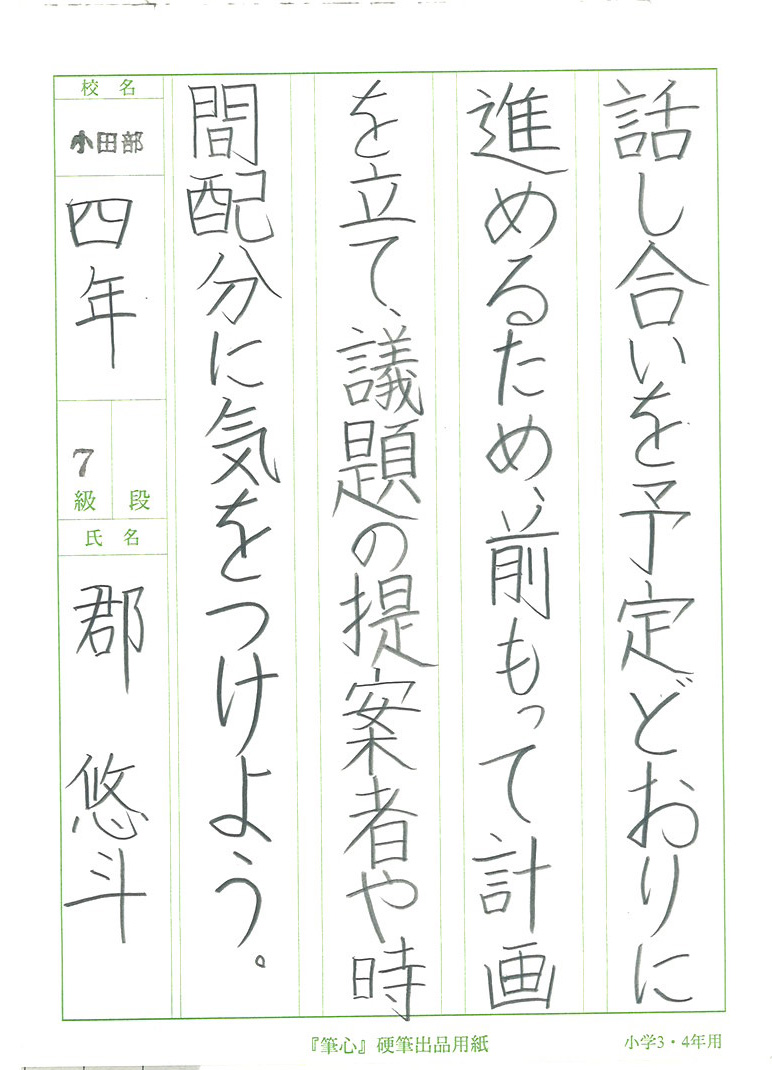 話し合いを予定どおりに
進めるため、前もって計画
を立て、議題の提案者や時
間配分に気をつけよう。
校名
小田部
四年
7
級 段
氏名
郡 悠斗
『筆心』硬筆出品用紙
小学3・4年用